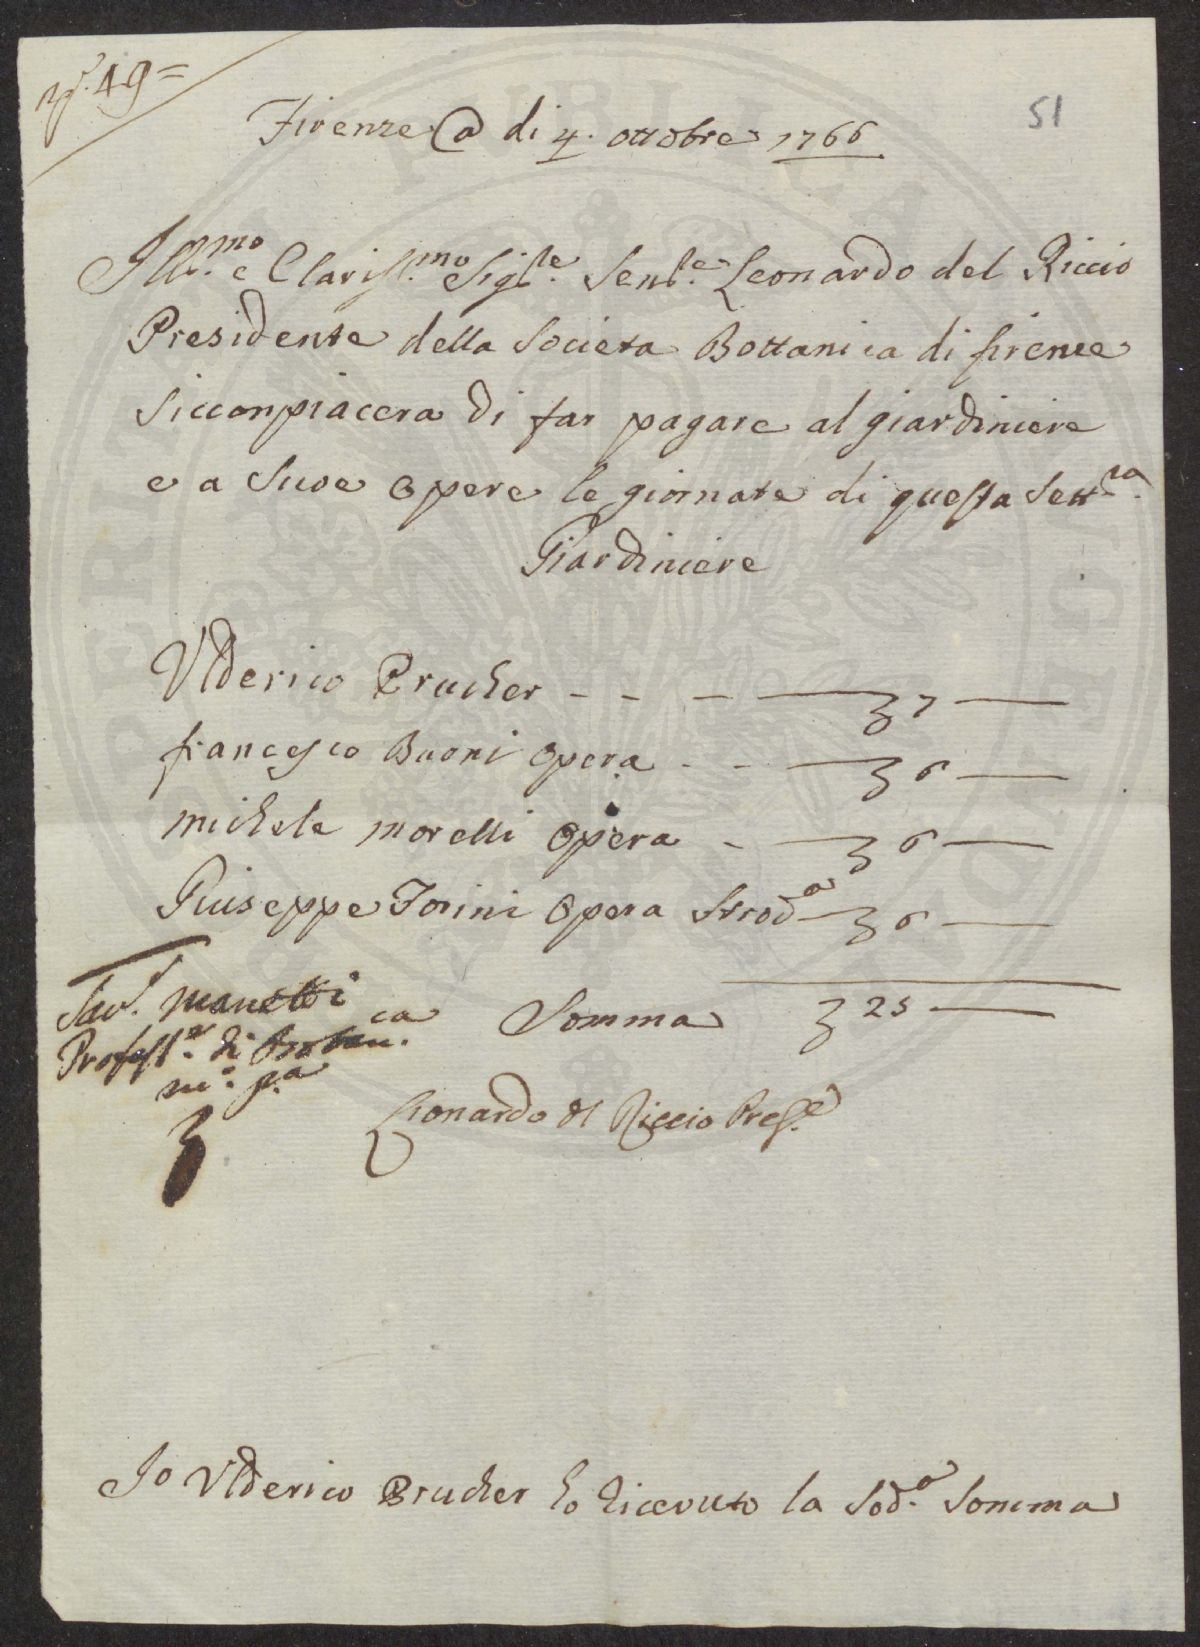 N.º 49=
51
Firenze @ di 4. ottobre 1766
Ill.mo e Clariss.mo Sig.re Sen.re Leonardo del Riccio
Presidente della Societa Bottanica di firenze
Siccompiacera di far pagare al giardiniere
e a Suoe Opere le giornate di questa Sett.na
Giardiniere
Ulderico Prucher - - - 7
francesco Buoni Opera - - 6
michele morelli Opera - 6
Giuseppe Torini Opera Strad.a 6
Sav. Manetti
Somma 25
Profess.e di Botan.ca
m.o p.a
Lionardo d Riccio Pres.e
Io Ulderico Prucher ho ricevuto la Sod.a Somma